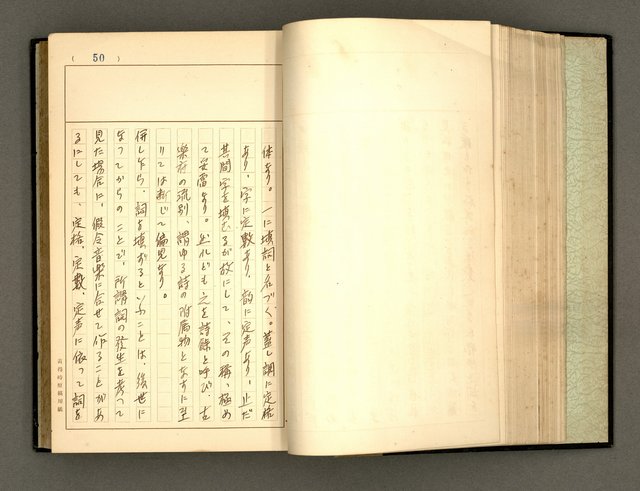 ( 50 )
体なり。一に填詞と名づく。蓋し調に定格
あり、字に定数あり、韵に定声あり、止だ
其間字を填むるが故にして、その称、極め
て妥當なり。然れども之を詩餘と呼び、古
樂府の流別、謂ゆる詩の附庸物となすに至
りては断じて偏見なり。
併し乍ら、詞を填めるといふことは、後世に
なつてからのことで、所謂詞の發生を考へて
見た場合に、假令音樂に合せて作ることがあ
るにしても、定格、定数、定声に依つて詞を
黃得時原稿用紙